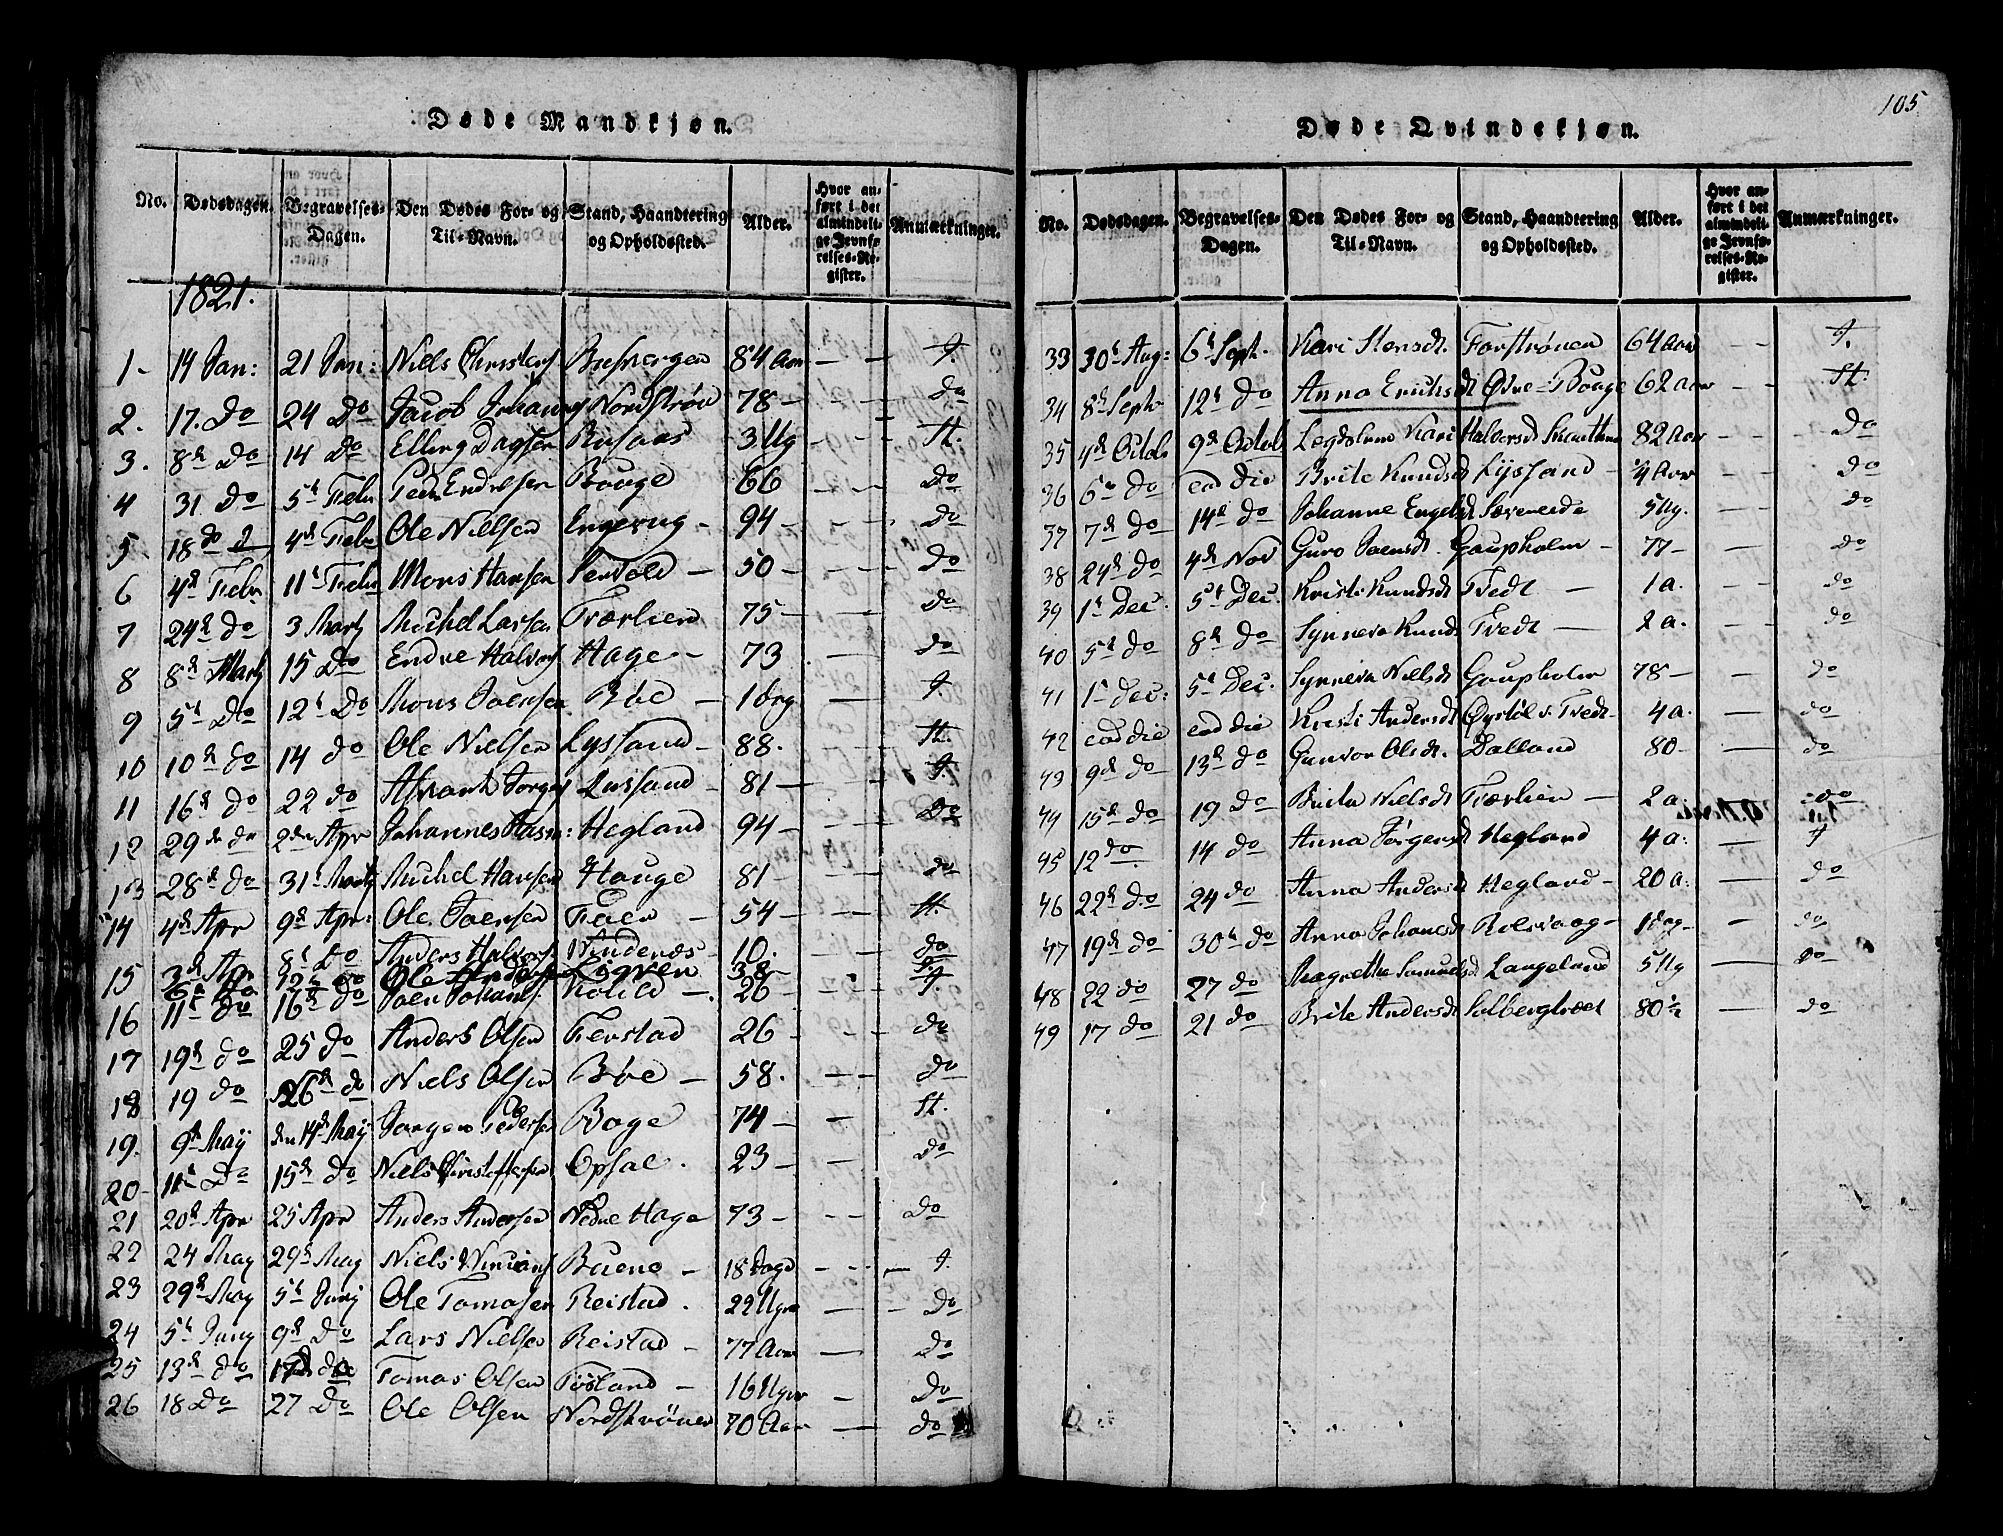 105
Døde Mandkjøn.
No. Dødsdagen. Begravelses-Dagen. Den Dødes For- og Til-Navn. Stand, Haandtering og Opholdssted. Alder. Hvor anført i det almindelige Jevnførelses-Register. Anmærkninger.
1821.
1 - 14 Jan: 21 Jan: Niels 84 Aar — — f.
2. 17. Do 24 Do Jacob Nordstrøn 78 — Do
3. 8de Do 14 Do Elling Dagsen 3 Ug — — St.
4 31 Do 5t Febr Peder Endresen Bouge 66 — — Do
5 18 do 4de Febr Ole Nielsen Engevig - 94 — Do
6 4de Febr 11t Febr Mons Hansen 50 — Do
7 24de do 3 Marty Michel Larsen Tværlien 75 — Do
8 8de Marty 15 Do Endre Halvors Hage - 73 — do
9 5t Do 12t Do Mons Joensen Bøe — f.
10 10de do 14 do Ole Nielsen Lyssand - 88. St.
11 16de do 22 do Lussand - 81 — f.
12 29de do 2den Apr Johannes Hegland 94 — Do
13 28de do 31t Marty Michel Hansen Houge 81 — do
14 4de Apr 9de Apr: Ole Joensen 54 — St.
15 3de Apr 8t Do Anders Halvors Vindenæs - 10. do
6te do 12te do Ole Anders 38 —
16 11te do 16de do Joen Johans 26 — f
17 19de do 25 do Anders Olsen 26 — do
18 19 do 26de do Niels Olsen Bøe — 58. do
19. 9de May den 14de May Jørgen Pedersen Boge 74 — St.
20 - 11t Do 15de do Niels Christoffersen Opsal. 23 — Do
21 20de Apr 25 Apr Anders Andersen Nedre Hage 73 — Do
22 24 May 29de May Niels 18 Dage — f.
23 29de May 5t Juny Ole Tomasen Reistad. 22 Uger — Do
24 5t Juny 9de Do Lars Nielsen Reistad — 77 Aar — Do
25 13de do 17 do Tomas Olsen Tøsland — 16 Uger — Do
26 18 Do 27 Do Ole Olsen Nordstrønen 70 Aar — do
Døde Qvindekjøn.
No. Dødsdagen. Begravelses-Dagen. Den Dødes For- og Til-Navn. Stand, Haandtering og Opholdssted. Alder. Hvor anført i det almindelige Jevnførelses-Register. Anmærkninger.
33 30t Aug: 6t Sept. Kari Stensdt. Forstrønen 64 Aar — f.
34 8de Septr 12t do Anna Eriksdt Øvre - Bouge 62 Aar — St.
35 4de Octob 9de Octob Kari Halversdt 82 Aar — Do
36 6te do eod die Brite Knudsdt Lyssand — 1/4 Aar — do
37 7de do 14de do Johanne Engelsdt Sævereide 5 Ug. — do
38 24de do 4de Nov Guro Joensdt. Gaupholm — 77 — do
39 1t Dec. 5t Dec. Kristi Knudsdt Tvedt — 1 a. — do
40 5t do 8de do Synneva Knudsdt Tvedt — 2 a. — do
41 1t Dec: 5t Dec. Synneva Nielsdt Gaupholm 78 — do
42 eod die eod die Kristi Andersdt Øystøl v. Tvedt - 4 a. — do
43 9de do 13de do Gunvor Olsdt. Dalland 80 — do
44 15de do 19 do Brita Nielsdt Tværlien — 2 a. — do
45 12 do 14 do Anna Jørgensdt Hegland 4 a: — f
46 22de do 24 do Anna Andersdt Hegland — 20 a: — do
47 19de do 30t do Anna Johanesdt Rolsvaag — 1 dag — do
48 22 do 27 do Magrethe Samuelsdt Langeland 5 Ug — Do
49 17 do 21 do Brite Andersdt Solbergtræet 80 1/2 — do